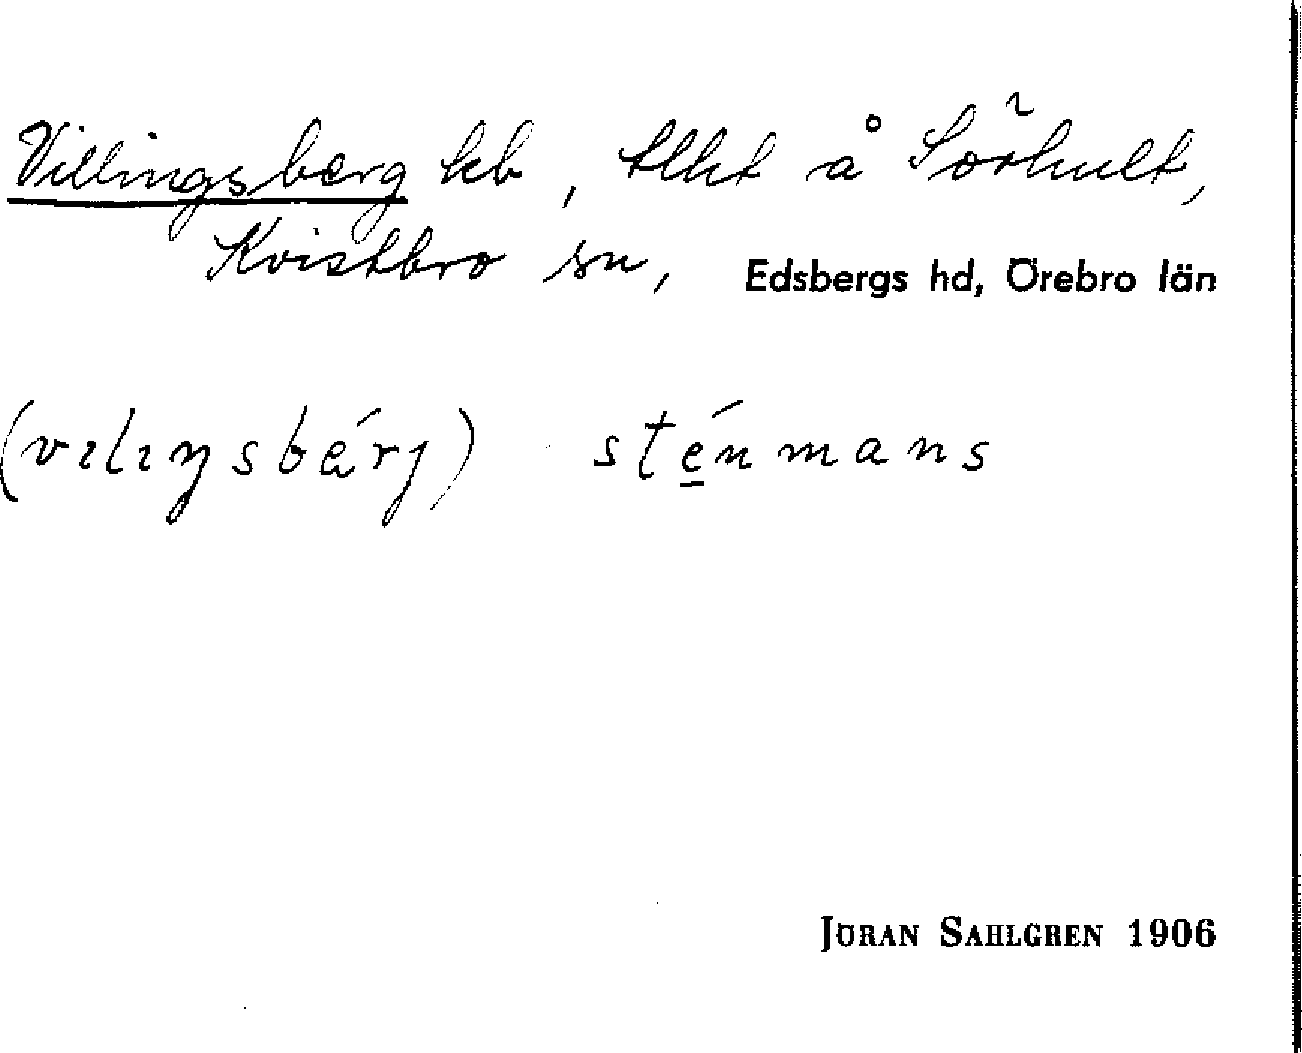 Villingsberg lhb, tllht å Sörhult,
Kvistbro sn, Edsbergs hd, Örebro län
(vılıŋsbérj) sténmans
JÖRAN SAHLGREN 1906